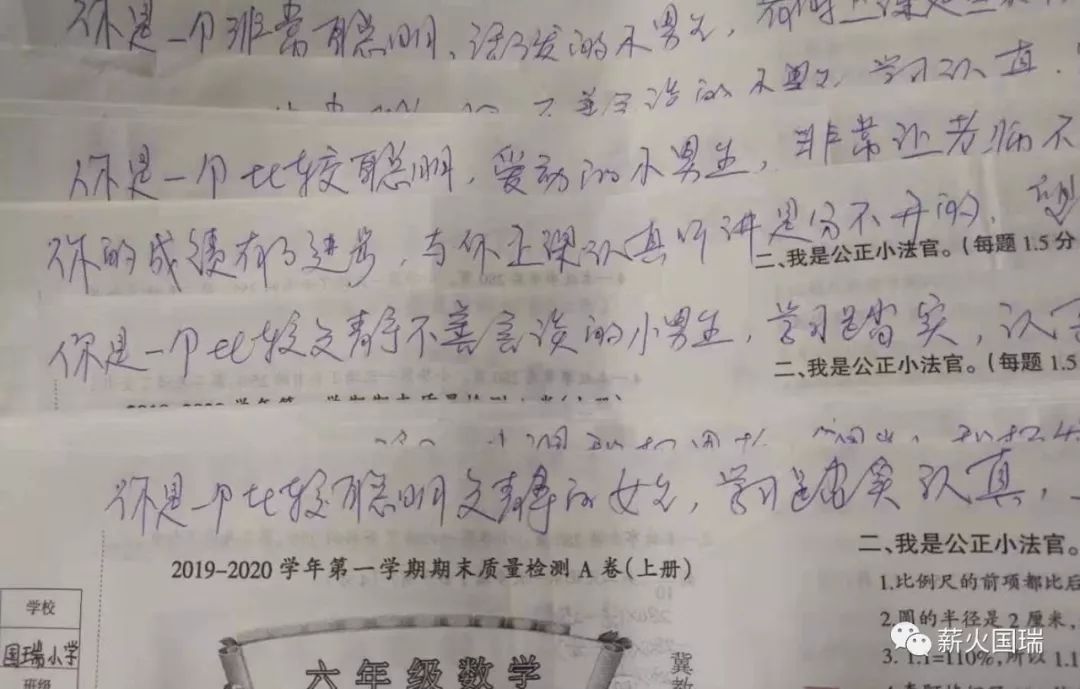 你是一个非常聪明、活泼的小男生，
不善言谈的小男生，学习认真
你是一个比较聪明，爱动的小男生，非常让老师不
你的成绩有了进步，与你上课认真听讲是分不开的，
二、我是公正小法官。（每题1.5分
你是一个比较文静不善言谈的小男生，学习踏实，认
二、我是公正小法官。（每题1.5
你是一个比较聪明文静的女生，学习踏实认真，
2019-2020学年第一学期期末质量检测A卷（上册）
二、我是公正小法官。
1.比例尺的前项都比后
2.圆的半径是2厘米，
3. 1.1=110%，所以1.1
学校
国瑞小学
班级
六年级数学
冀教
薪火国瑞